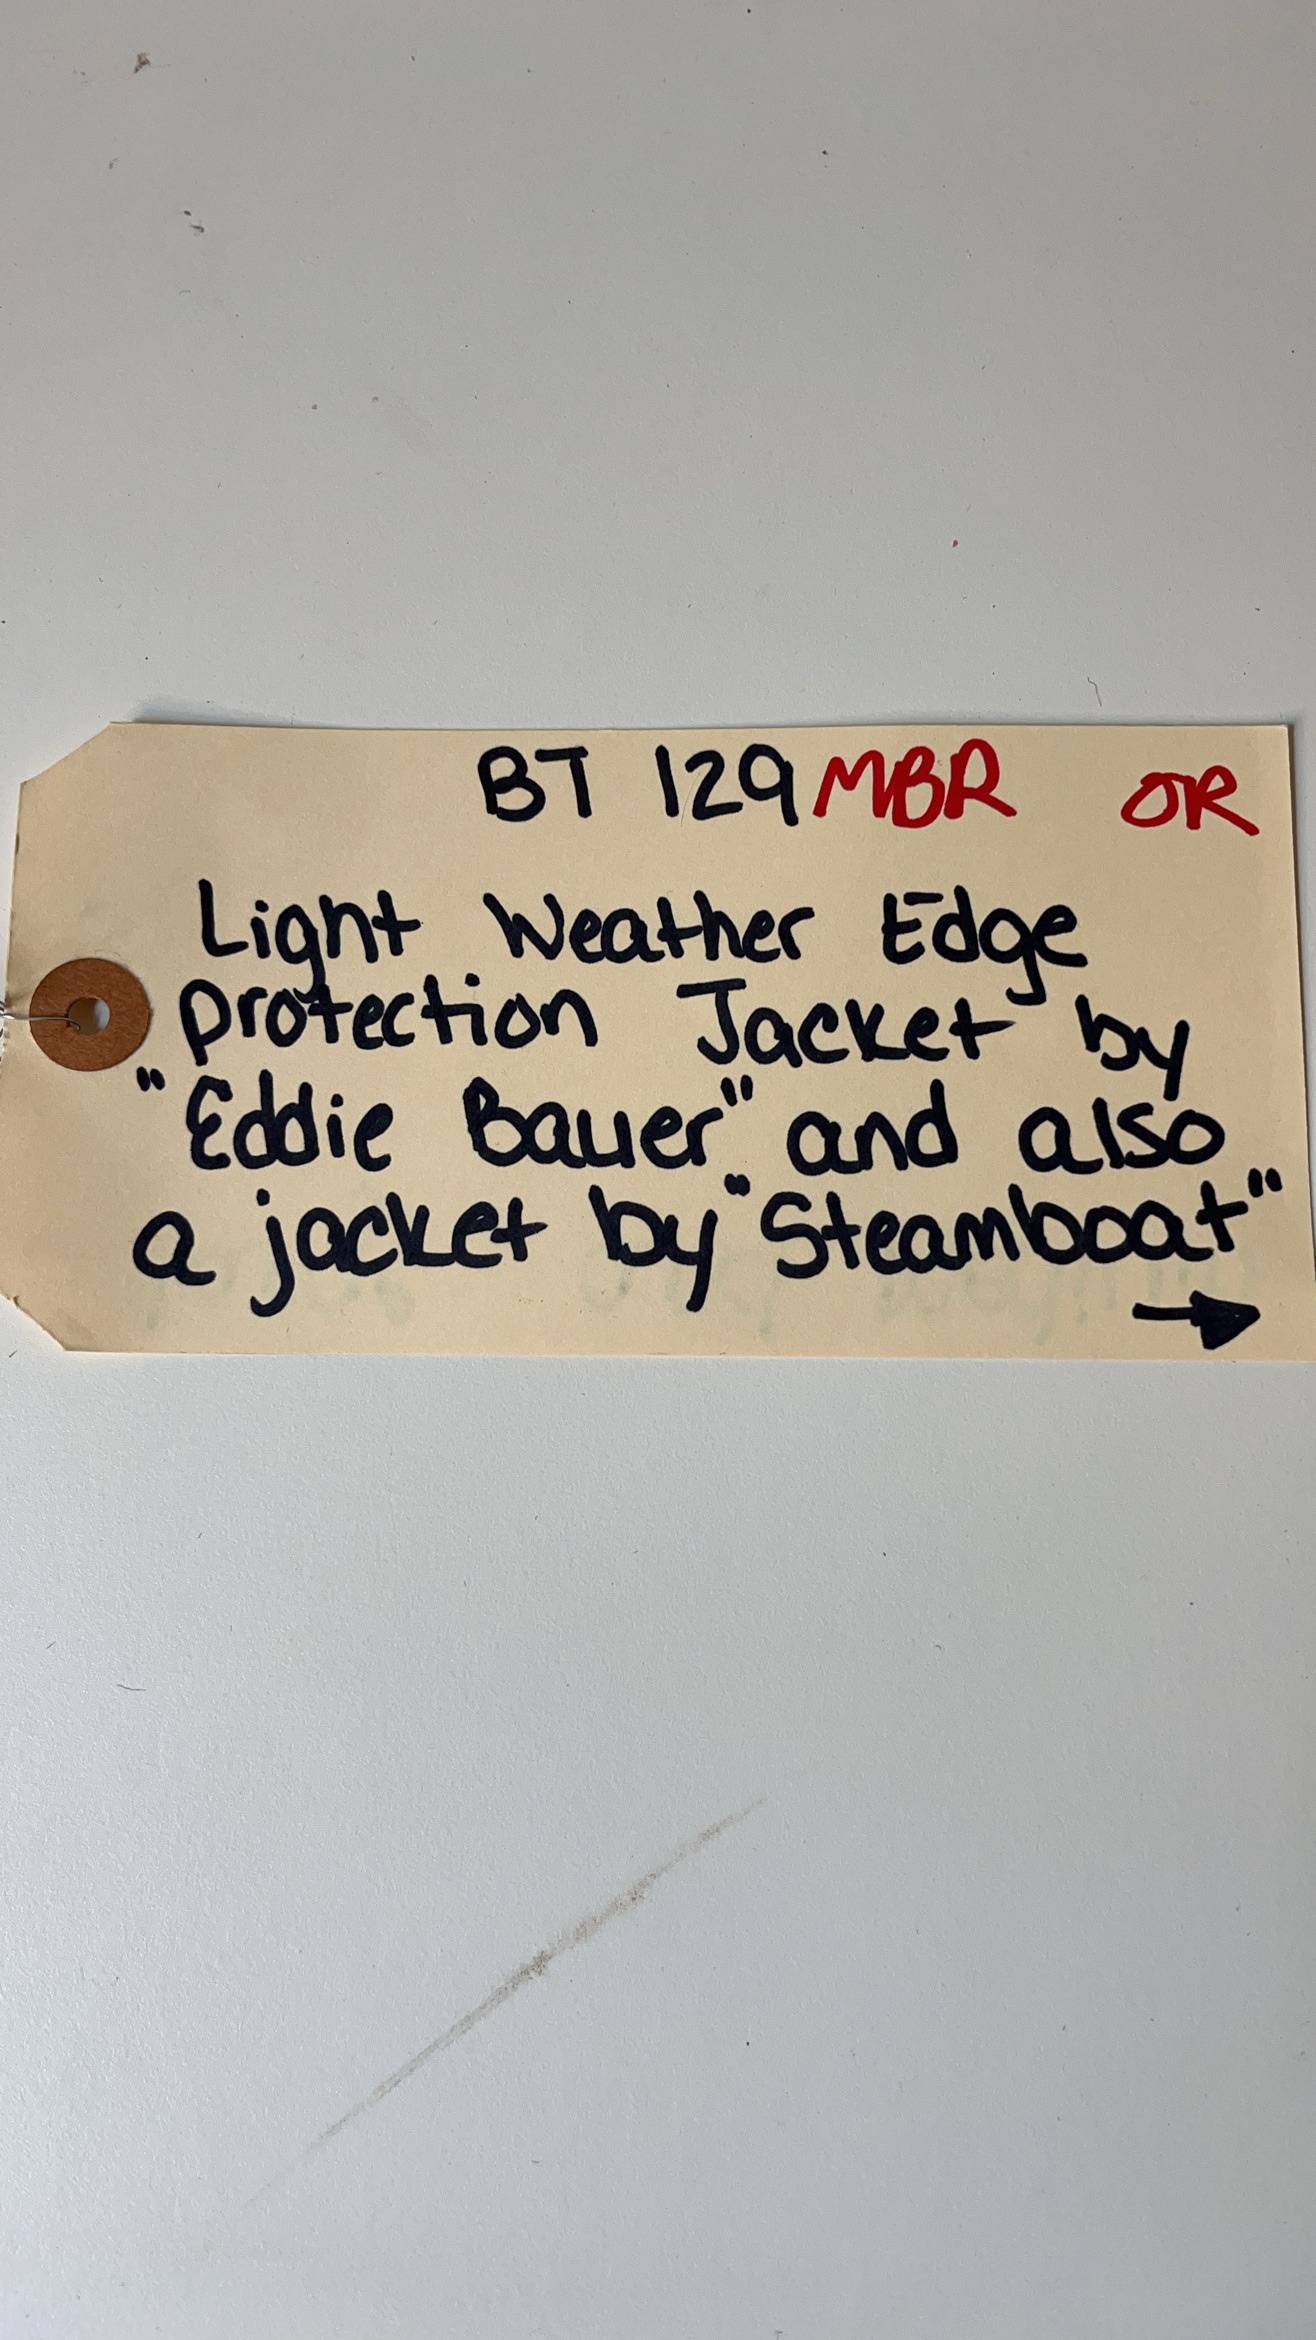 BT 129 MBR OR
Light Weather Edge
Protection Jacket by
"Eddie Bauer" and also
a jacket by "Steamboat"
→